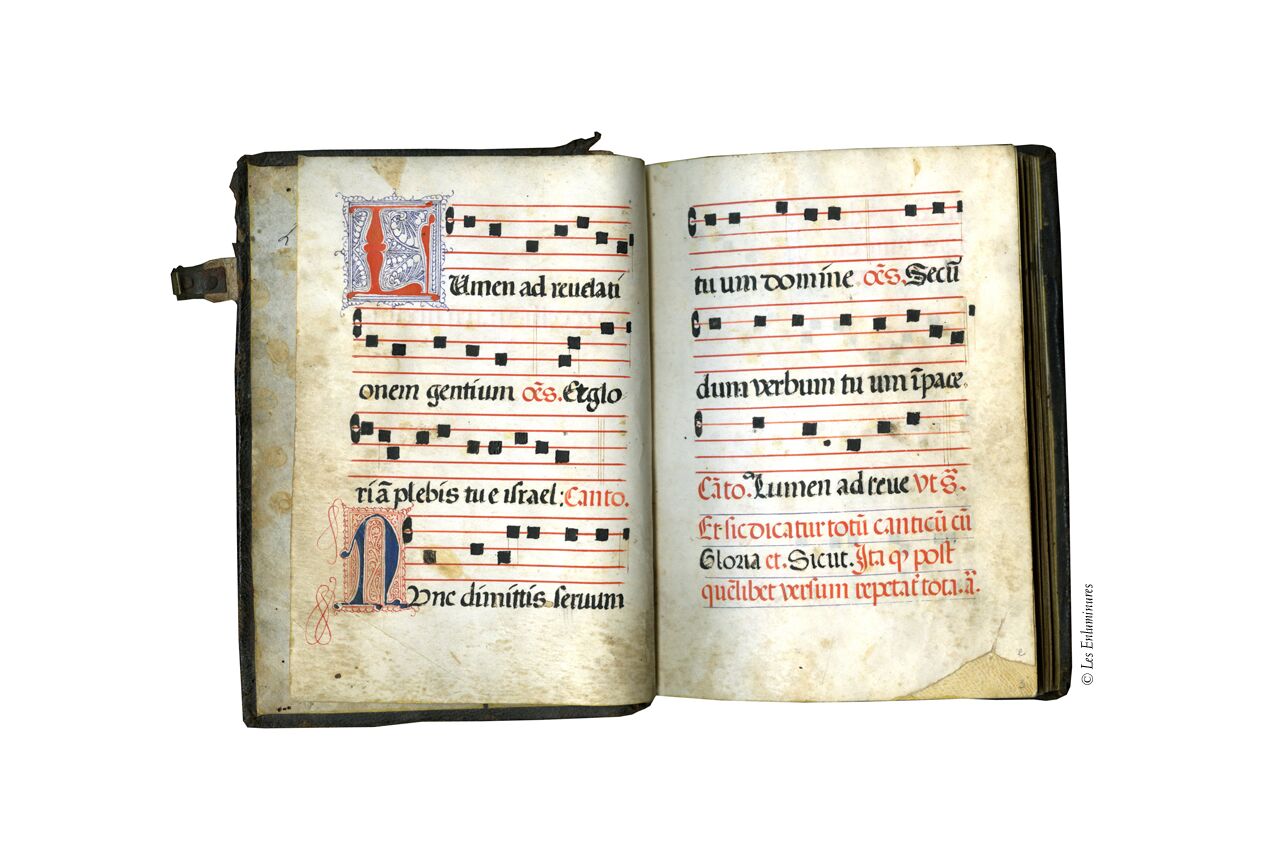 LUmen ad reuelati
onem gentium oēs. Et glo
riā plebis tu e israel: Canto.
NUnc dimittis seruum
tu um domine oēs. Secū
dum verbum tu um ī pace.
Cāto. Lumen ad reue vt s̄.
Et sic dicatur totū canticū cū
Gloria et. Sicut. Ita qꝫ post
quēlibet versum repetat̄ tota. ā.
© Les Enluminures